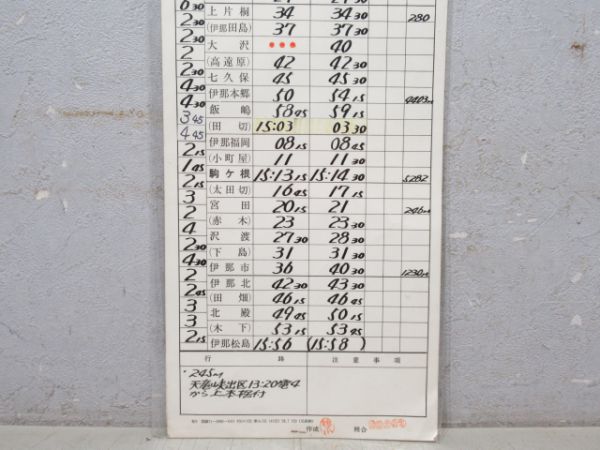 0 30
2 上片桐 34 34 30 280
2 30 (伊那田島) 37 37 30
2 大沢 ••• 40
2 30 (高遠原) 42 42 30
4 30 七久保 45 45 30
4 30 伊那本郷 50 54 15 4403m
3 45 飯嶋 58 45 59 15
4 45 (田切) 15:03 03 30
2 15 伊那福岡 08 15 08 45
1 45 (小町屋) 11 11 30
2 15 駒ヶ根 15:13 15 15:14 30 5282
3 (太田切) 16 45 17 15
2 宮田 20 15 21 246m
4 (赤木) 23 23 30
2 30 沢渡 27 30 28 30
4 30 (下島) 31 31 30
2 伊那市 36 40 30 1230m
2 45 伊那北 42 30 43 30
3 (田畑) 46 15 46 45
3 北殿 49 45 50 15
2 15 (木下) 53 15 53 45
伊那松島 15:56 (15:58)
行路 注意事項
245M
天竜峡出区13:20
から上本松行
作成 照合